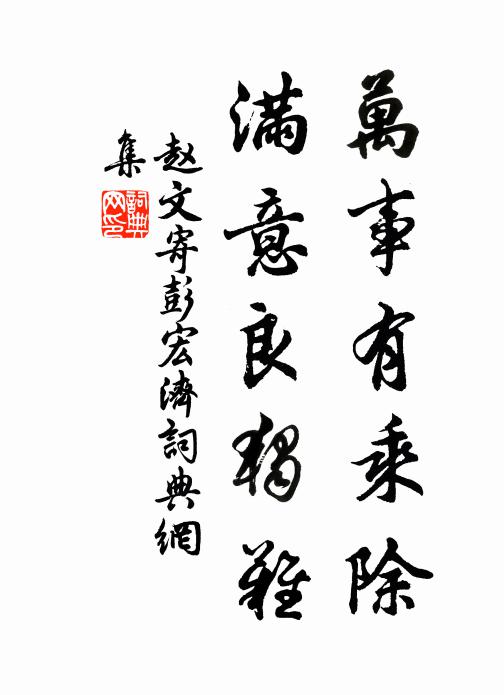 萬事有乘除
滿意良獨難
赵文寄彭宏濟詞典網
集
詞典网印